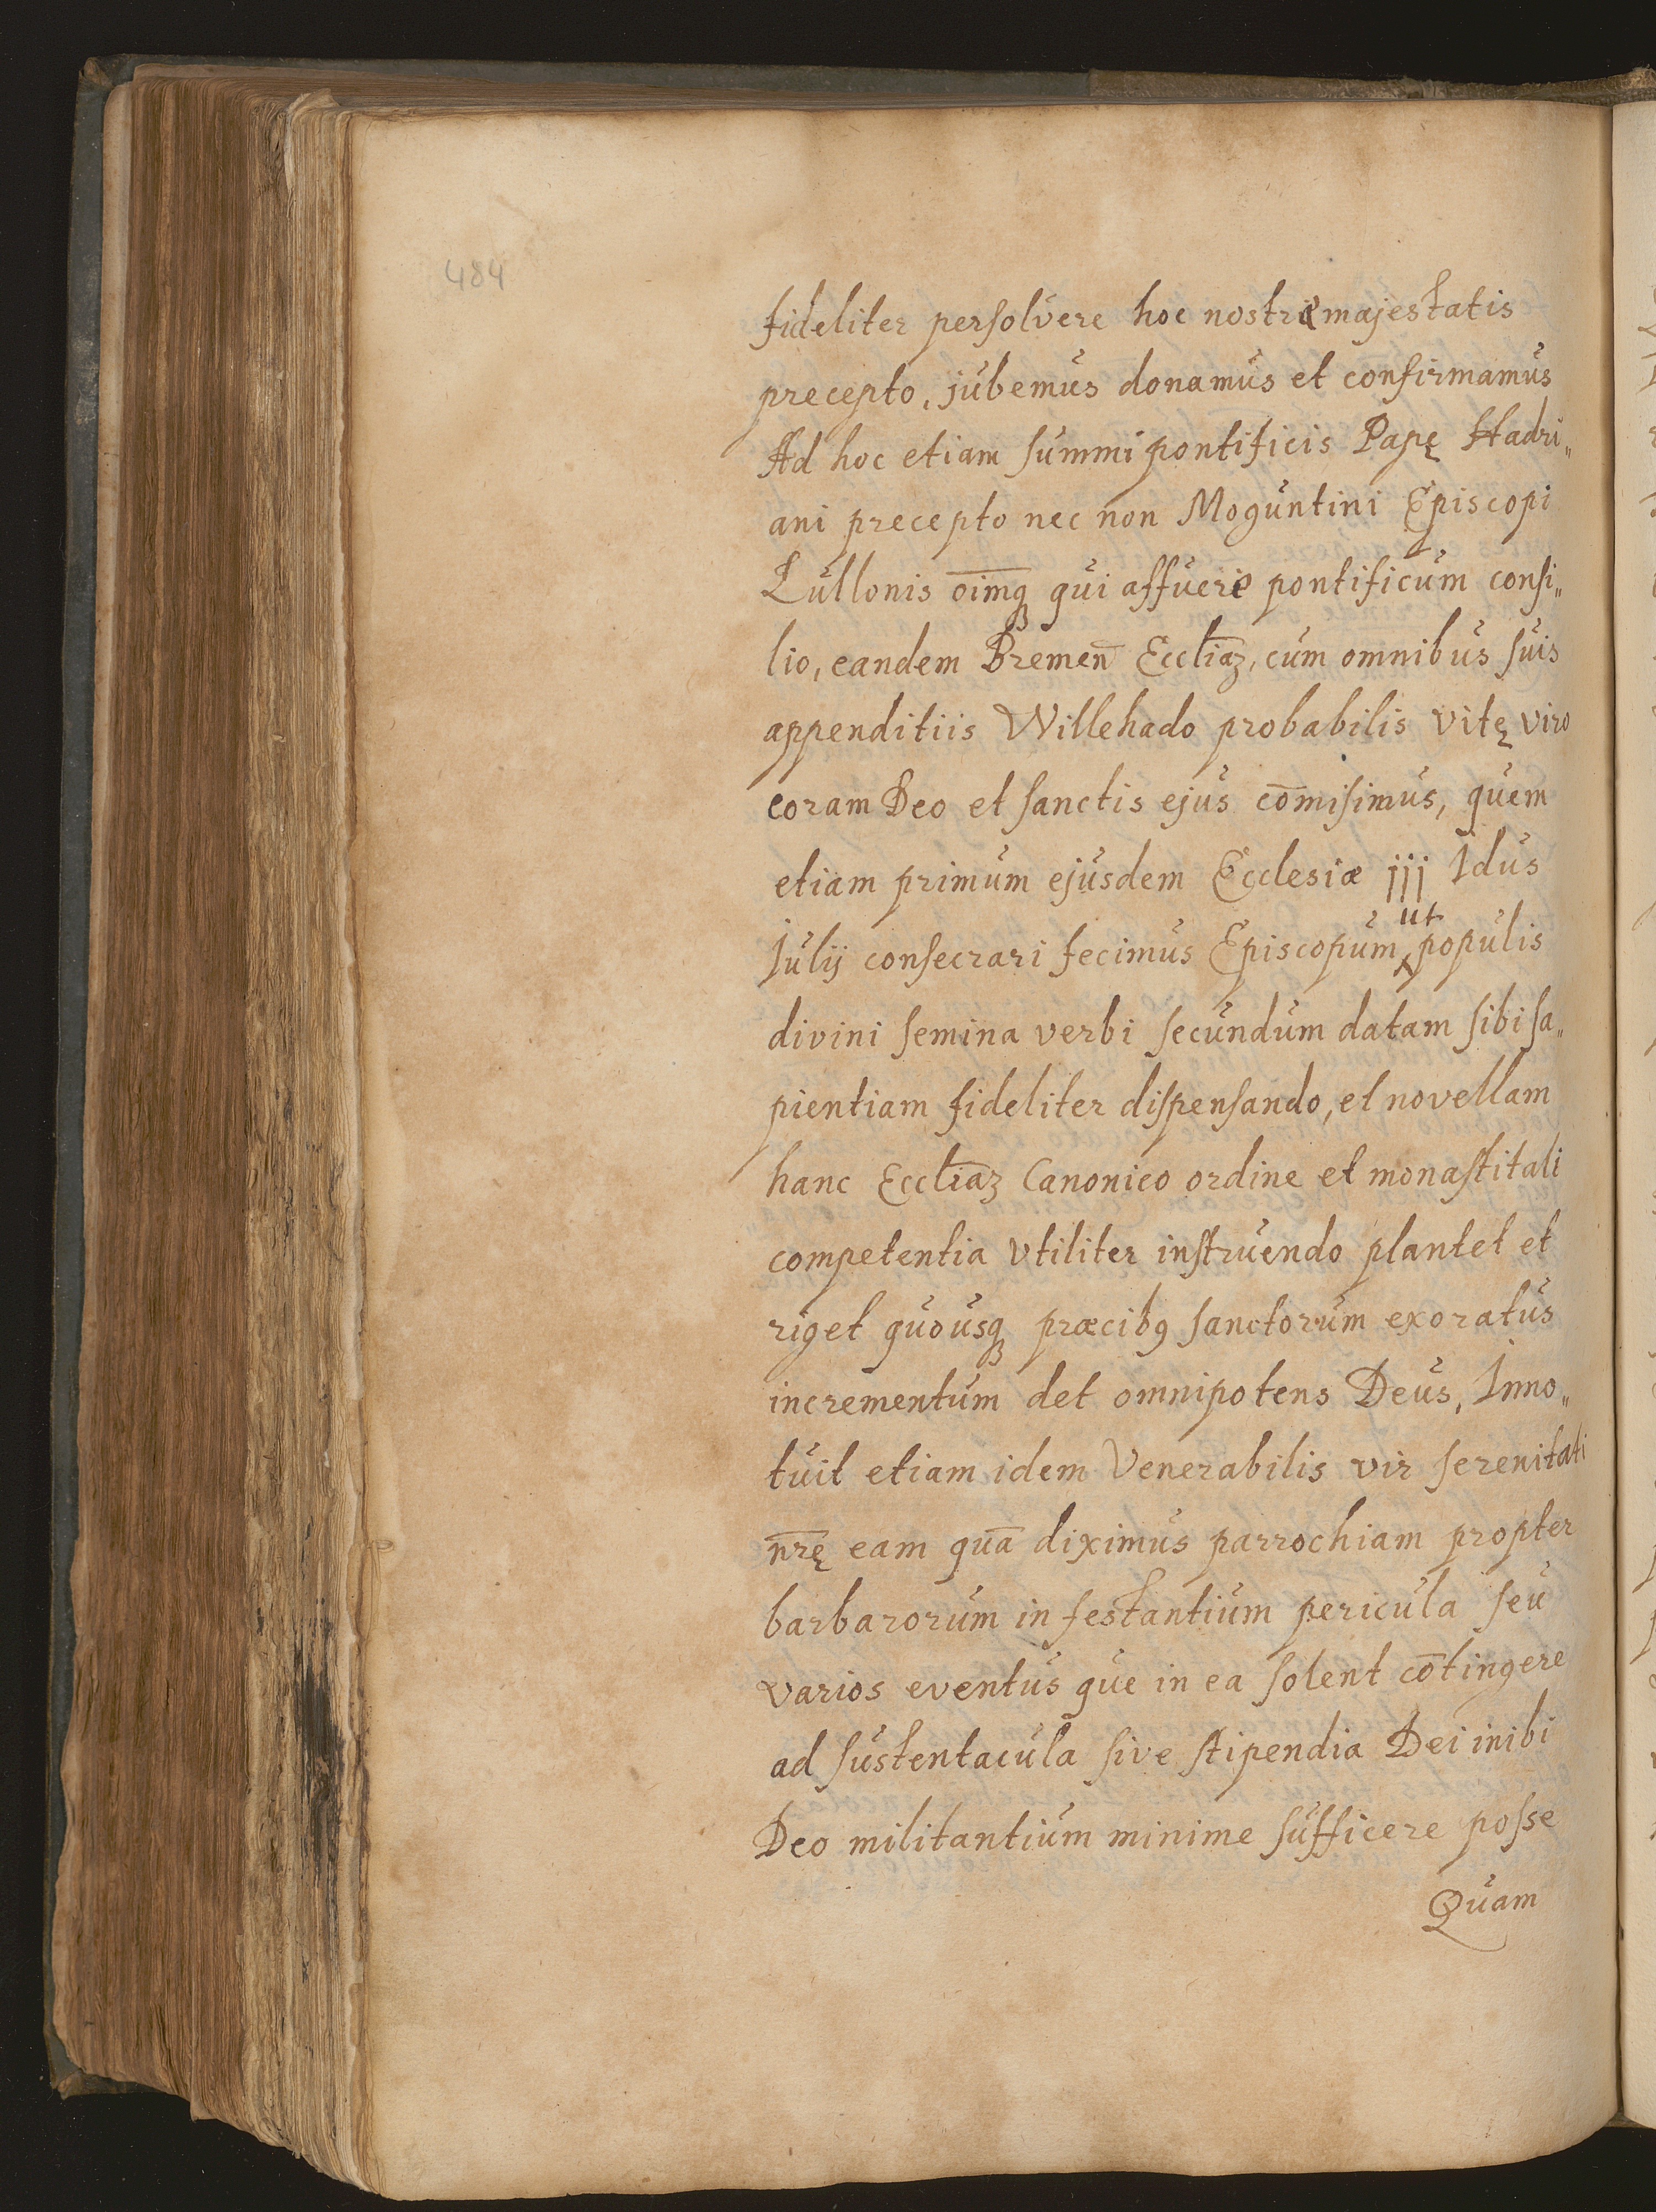 484
fideliter persolvere hoc nostræ majestatis
precepto, jubemus donamus et confirmamus
Ad hoc etiam summi pontificis Papę Hadri„
ani precepto nec non Moguntini Episcopi
Lullonis oīmq̨ qui affuere pontificum consi„
lio, eandem Bremen̄ Eccl̄iaz, cum omnibus suis
appenditiis Willehado probabilis vitę viro
coram Deo et sanctis ejus cōmisimus, quem
etiam primum ejusdem Ecclesiæ jjj Idus
ut
Julij consecrari fecimus Episcopum, populis
divini semina verbi secundum datam sibi sa„
pientiam fideliter dispensando, et novellam
hanc Eccl̄iaz Canonico ordine et monastitali
competentia vtiliter instruendo plantet et
riget quousq̨ præcibꝯ sanctorum exoratus
incrementum det omnipotens Deus, Inno„
tuit etiam idem Venerabilis vir serenitati
nr̄ę eam quā diximus parrochiam propter
barbarorum in festantium pericula seu
varios eventus que in ea solent cōtingere
ad sustentacula sive stipendia Dei inibi
Deo militantium minime sufficere posse
Quam